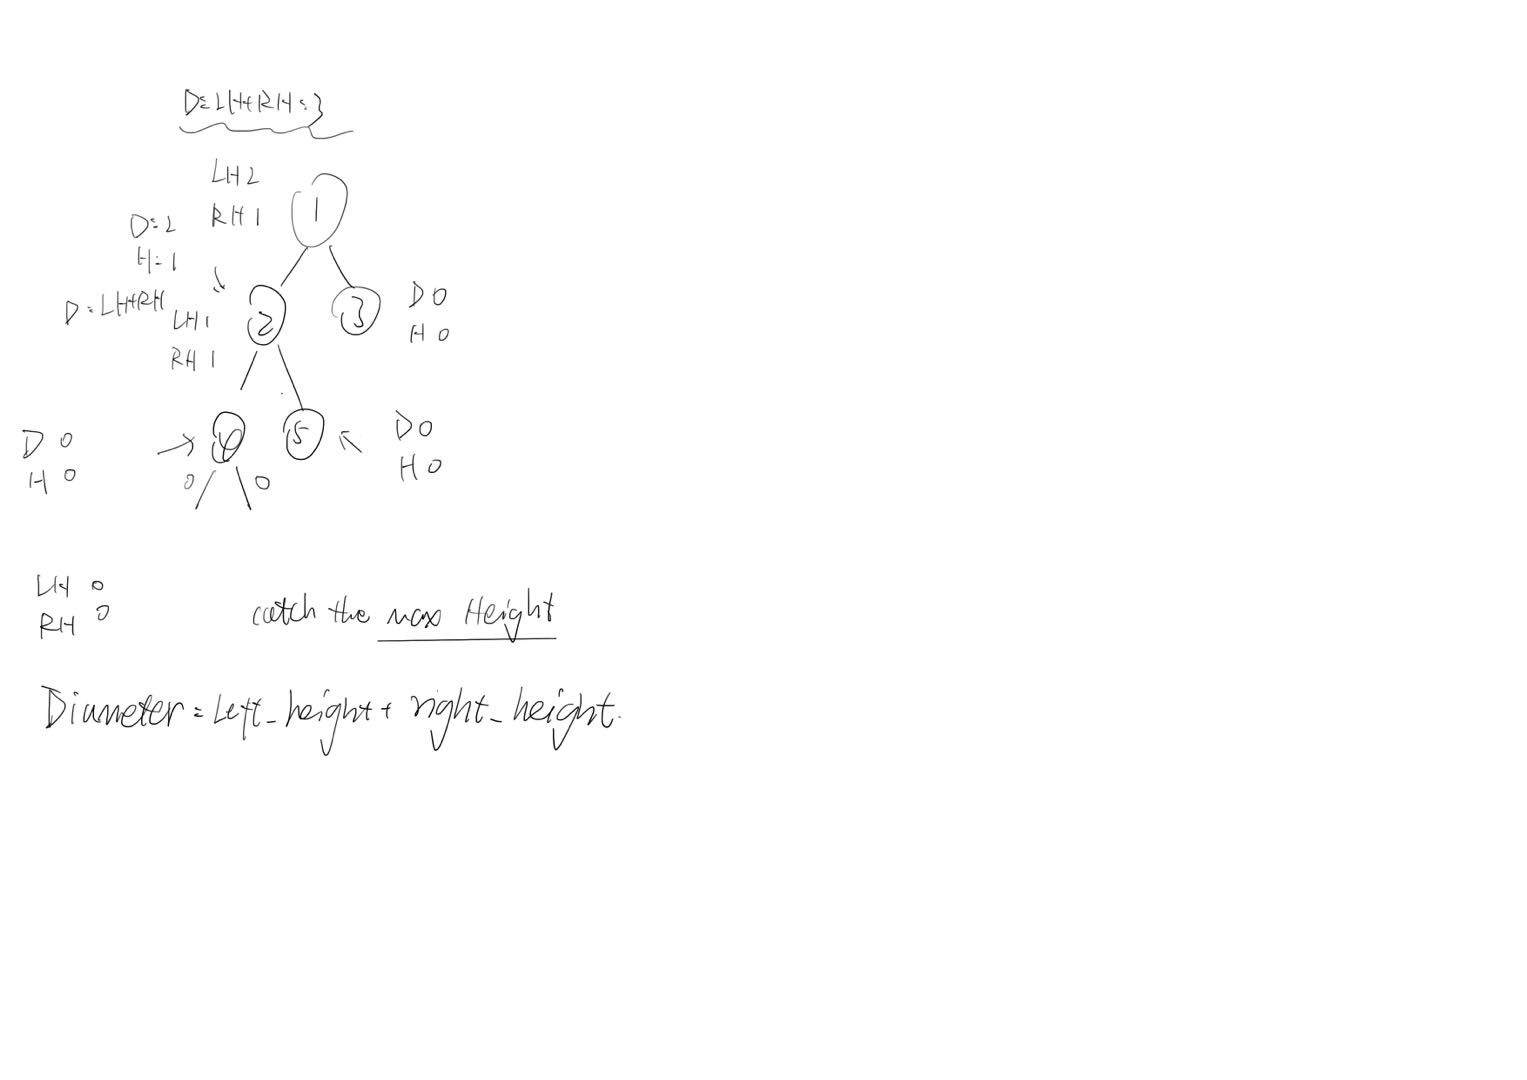 D=LH+RH=3
LH2
RH1
1
D=2
H=1
D=LH+RH
LH1
RH1
2
3
D0
H0
D0
H0
4
5
D0
H0
0
0
LH 0
RH 0
catch the max Height
Diameter=Left_height+right_height.